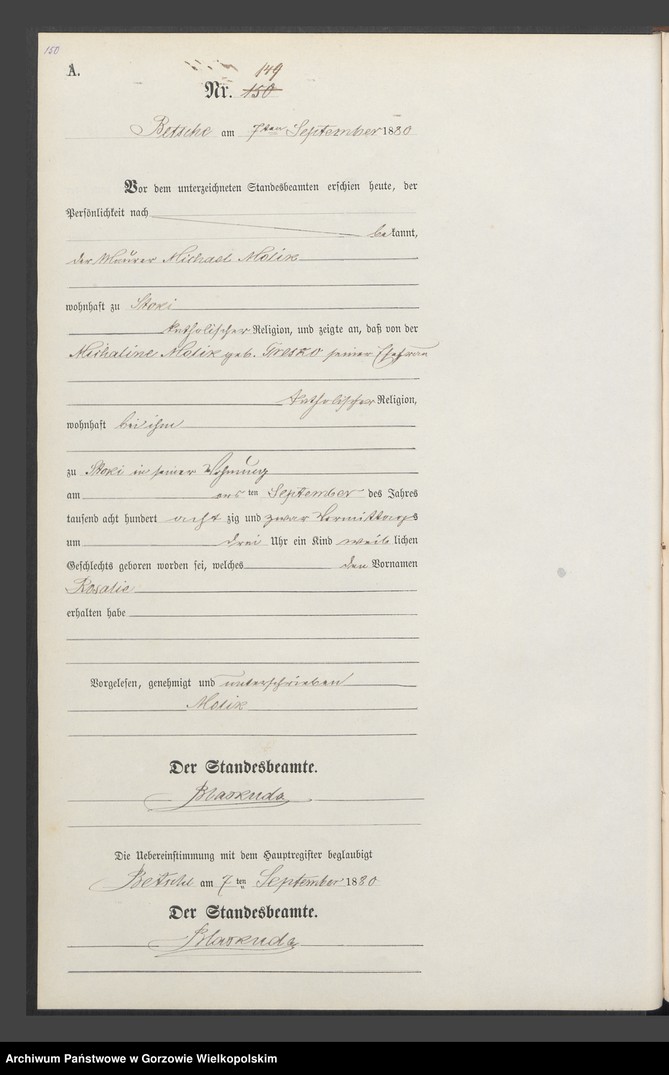 150
A.
149
Nr. 150
Betsche am 7ten September 1880
Vor dem unterzeichneten Standesbeamten erschien heute, der
Persönlichkeit nach
bekannt,
der Maurer Michael Molik
wohnhaft zu Stoki
katholischer Religion, und zeigte an, daß von der
Michaline Molik geb. seiner Ehefrau
katholischer Religion,
wohnhaft bei ihm
zu Stoki in seiner Wohnung
am ten September des Jahres
tausend acht hundert acht zig und zwar Vormittags
um drei Uhr ein Kind weib lichen
Geschlechts geboren worden sei, welches den Vornamen
Rosalie
erhalten habe
Vorgelesen, genehmigt und unterschrieben
Molik
Der Standesbeamte.
Die Uebereinstimmung mit dem Hauptregister beglaubigt
Betsche am 7 ten September 1880
Der Standesbeamte.
Archiwum Państwowe w Gorzowie Wielkopolskim